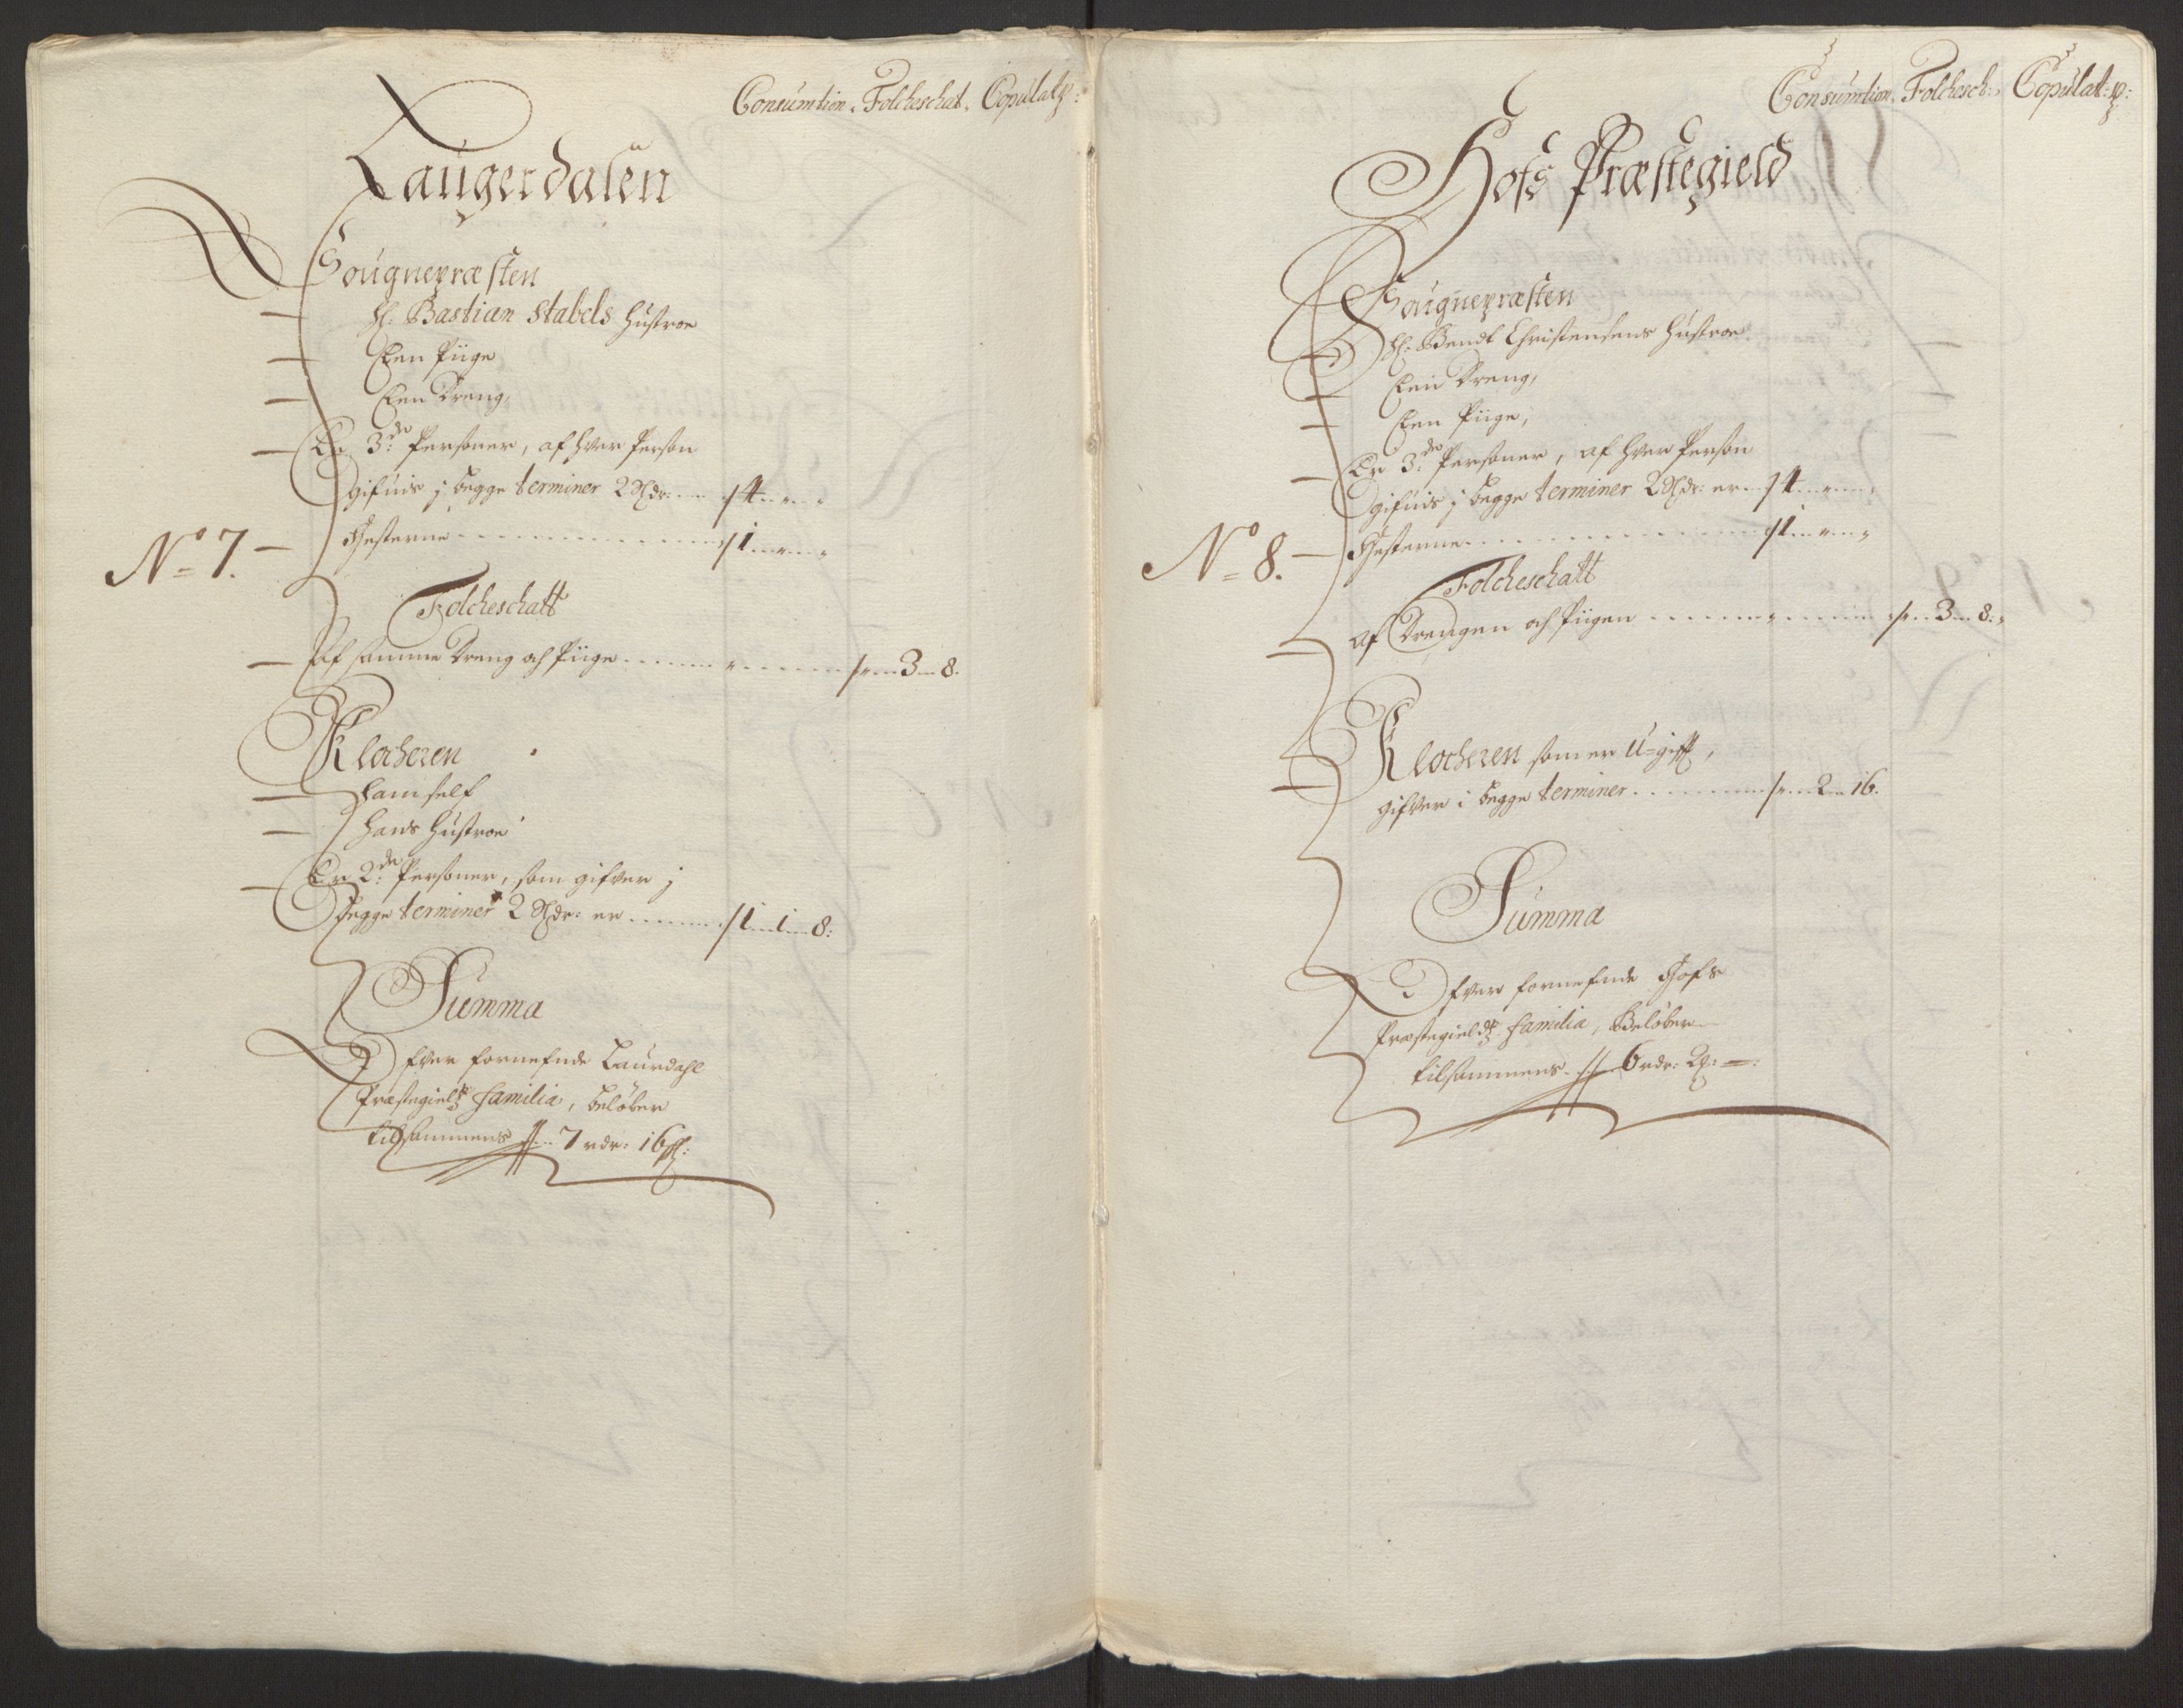 Consumtion. Folcheschat. Copulatz:
Laugerdalen
Sougnepræsten
H: Bastian Stabels Hustroe
Een Piige
Een Dreng,
Er 3de Personer, af hver Person
gifuis j begge terminer 2 Rdr: 4
No 7. Hesterne 1
Folcheschatt
Af samme Dreng och Piige 3 8.
Klocheren
Hamself
Hans Hustroe
Er 2de Personer, som gifver j
begge terminer 2 Rdr: er 1 1 8:
Summa
Ofver fornefnde Laurdahl
Præstegieldz familia, beløber
tilsammens 7 rdr: 16 s:
Consumtion. Folchesch: Copulat:z:
Hofs Præstegield
Sougnepræsten
H: Bendt Christensens Hustroe
Een Dreng,
Een Piige,
Er 3de Personer, af hver Person
gifuis j begge terminer 2 Rdr: er 4
No 8. Hesterne 1
Folcheschatt
af Drengen och Piigen 3 8.
Klocheren som er U-gift,
gifver i begge terminer 2 16.
Summa
Ofver fornefnde Hofs
Præstegieldz familia, Beløber
tilsammens 6 rdr: 2